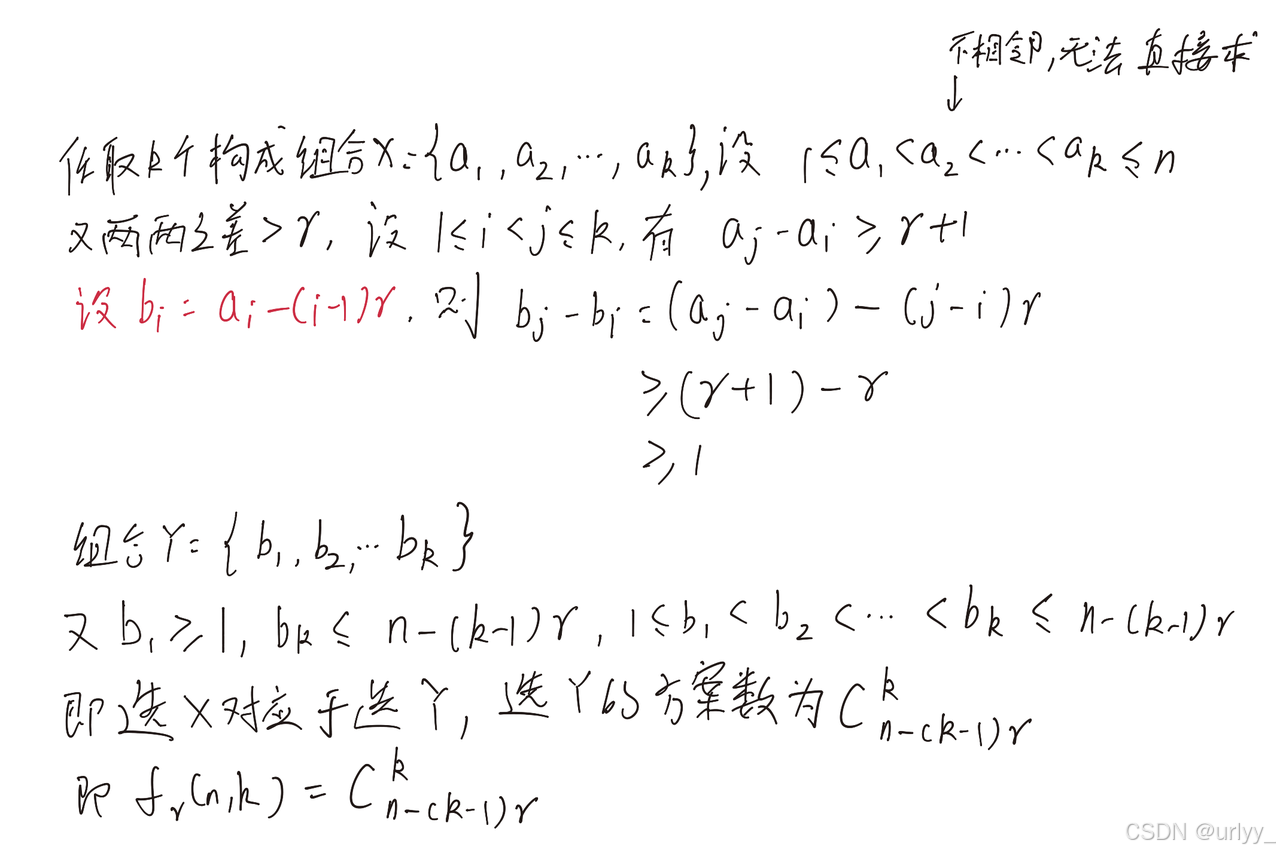 不相邻,无法直接求
↓
任取k个构成组合X={a₁,a₂,…,aₖ},设 1≤a₁<a₂<…<aₖ≤n
又两两之差>r, 设 1≤i<j≤k, 有 aⱼ-aᵢ≥r+1
设 bᵢ=aᵢ-(i-1)r, 则 bⱼ-bᵢ=(aⱼ-aᵢ)-(j-i)r
≥(r+1)-r
≥1
组合Y={b₁,b₂,…bₖ}
又 b₁≥1, bₖ≤ n-(k-1)r, 1≤b₁<b₂<…<bₖ≤ n-(k-1)r
即选X对应于选Y, 选Y的方案数为 C^k_{n-(k-1)r}
即 fᵣ(n,k)=C^k_{n-(k-1)r}
CSDN @urlyy_